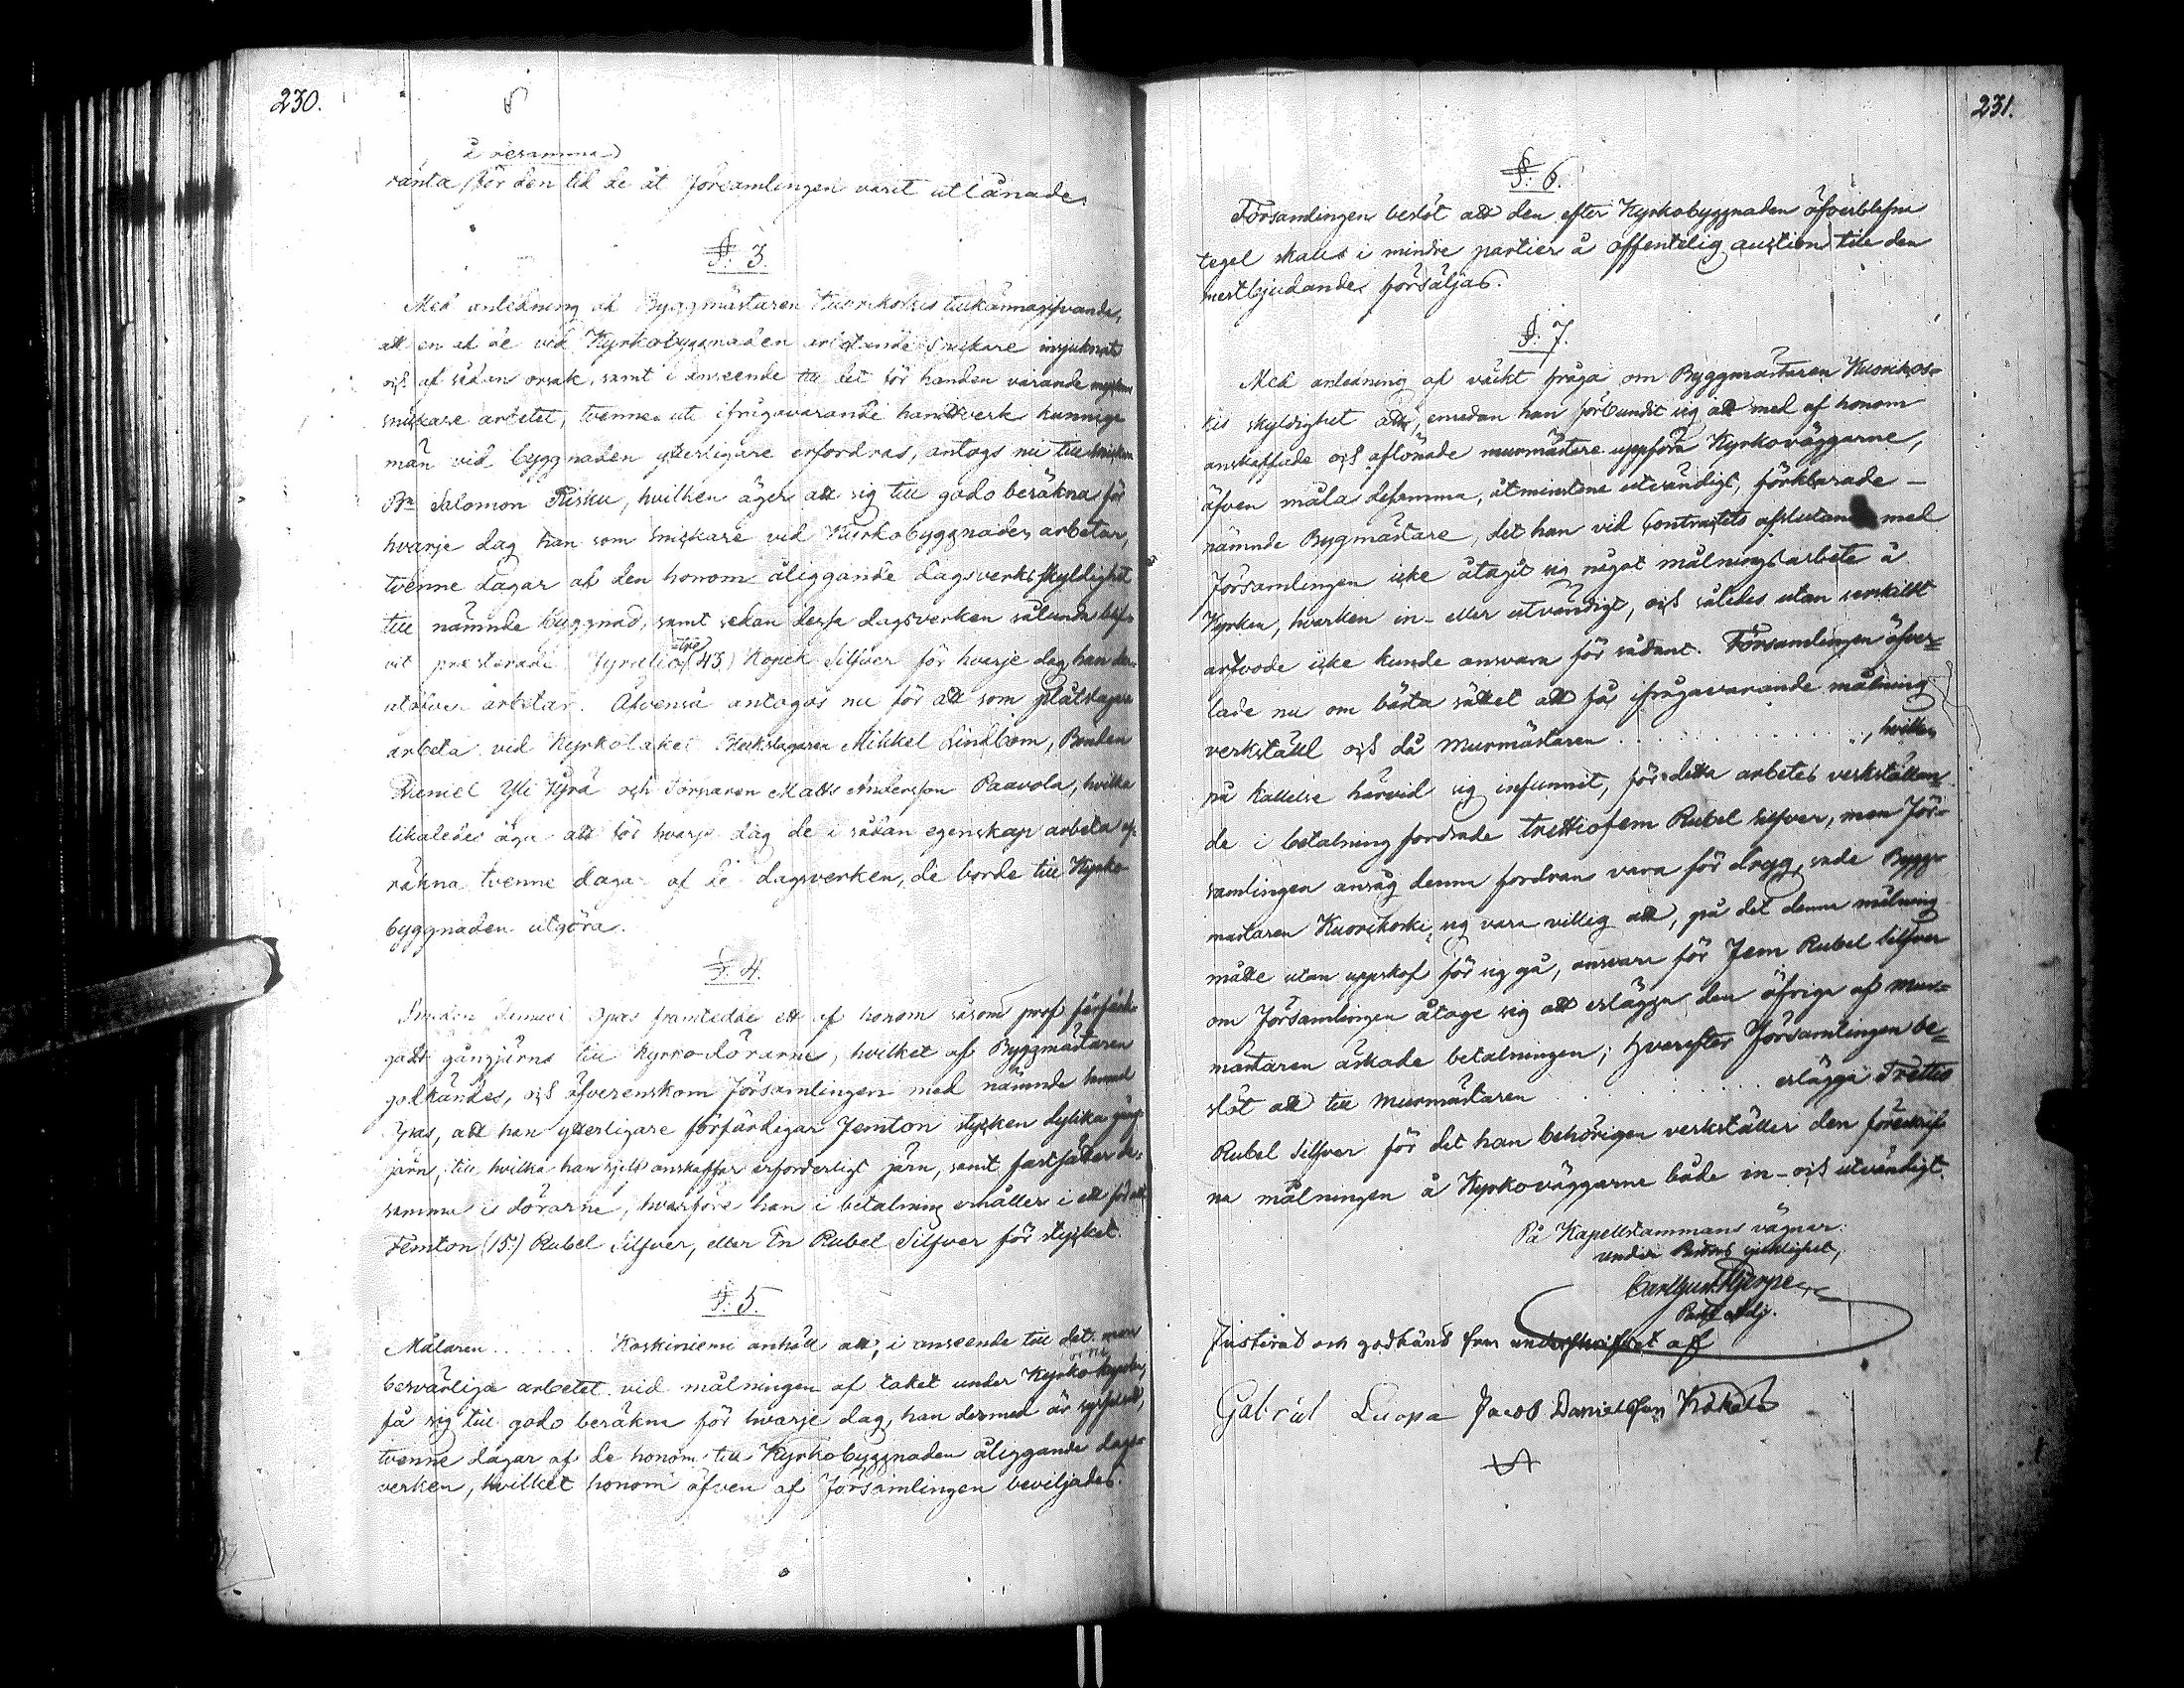 230.
å desamma
ränta för den tid de åt Församlingen varit utlånade.
§. 3.
Med anledning af Byggmästaren Kuorikoskis tillkännagifvande,
att en af de vid Kyrkobyggnaden arbetande snickare insjuknat
och af sådan orsak, samt i anseende till det för handen varande
snickare arbetet, tvenne uti ifrågavarande handtverk kunnige
män vid byggnaden ytterligare erfordras, antogs nu till
Bn Salomon Risku, hvilken äger att sig till godo beräkna för
hvarje dag han som snickare vid Kyrkobyggnaden arbetar,
tvenne dagar af den honom åliggande dagsverksskyldighet
till nämnde byggnad, samt sedan dessa dagsverken sålunda blif-
vit presterade Fyratio (43) Kopek Silfver för hvarje dag han der-
utöfver arbetar. Äfvenså antogos nu för att som plåtslagare
arbeta vid Kyrkotaket Bleckslagaren Mikkel Lindbom, Bonden
Daniel Yli Hyrä och Torparen Matts Andersson Paavola, hvilka
likaledes äga att för hvarje dag de i sådan egenskap arbeta af-
räkna tvenne dagar af de dagsverken, de borde till Kyrko-
byggnaden utgöra.
§. 4.
Smeden Ipas framtedde ett af honom såsom prof förfärdi-
gadt gångjärns till Kyrko-dörarne, hvilket af Byggmästaren
godkändes, och öfverenskom Församlingen med nämnde
Ipas, att han ytterligare förfärdigar Femton stycken dylika gång-
järn, till hvilka han sjelf anskaffar erforderligt järn, samt fastsätter de-
samma i dörarne, hvarföre han i betalning erhåller i ett för allt
Femton (15:) Rubel Silfver, eller En Rubel Silfver för stycket.
§. 5.
Målaren . . . . . . . Koskiniemi anhöll att, i anseende till det
besvärliga arbetet vid målningen af taket under Kyrko
få sig till godo beräkna för hvarje dag, han dermed är sysselsatt,
tvenne dagar af de honom till Kyrkobyggnaden åliggande dags-
verken, hvilket honom äfven af Församlingen beviljades.
231.
§. 6.
Församlingen beslöt att den efter Kyrkobyggnaden öfverblefne
tegel skall i mindre partier å offentelig auction till den
mestbjudande försäljas.
§. 7.
Med anledning af väckt fråga om Byggmästaren Kuorikos-
kis skyldighet att, emedan han förbundit sig att med af honom
anskaffade och aflönade murmästare uppföra Kyrkoväggarne,
äfven måla desamma, åtminstone utvändigt, förklarade
nämnde Bygmästare, det han vid Contractets afslutande med
Församlingen icke åtagit sig något målningsarbete å
Kyrkan, hvarken in- eller utvändigt, och således utan serskildt
arfvode icke kunde ansvara för sådant. Församlingen öfver-
lade nu om bästa sättet att få ifrågavarande målning
verkstäld och då Murmästaren . . . . . . . . . . . . , hvilken
på kallelse härvid sig infunnit, för detta arbetes verkställan-
de i betalning fordrade Trettiofem Rubel Silfver, men För-
samlingen ansåg denna fordran vara för dryg, sade Bygg-
mästaren Kuorikoski sig vara villig att, på det denna målning
måtte utan uppskof för sig gå, ansvara för Fem Rubel Silfver
om Församlingen åtage sig att erlägga den öfriga af Mur-
mästaren äskade betalningen; hvarefter Församlingen be-
slöt att till Murmästaren . . . . . . . . . . erlägga Trettio
Rubel Silfver för det han behörigen verkställer den föreskrif-
na målningen å Kyrkoväggarne både in- och utvändigt.
På Kapellstammans vägnar:
Justerat och godkänd
Gabriel Luopa Jacob Danielsson